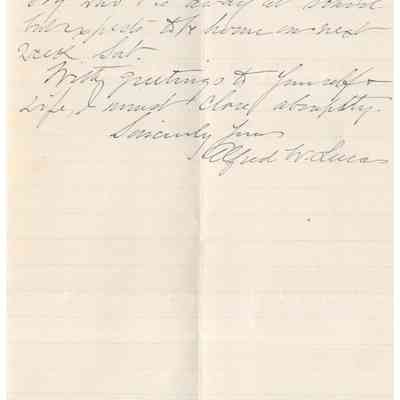 boy who is away at school
but expects to be home on next
week Sat.
With greetings to yourself &
wife, I must close abruptly.
Sincerely Yours
Alfred W. Lucas